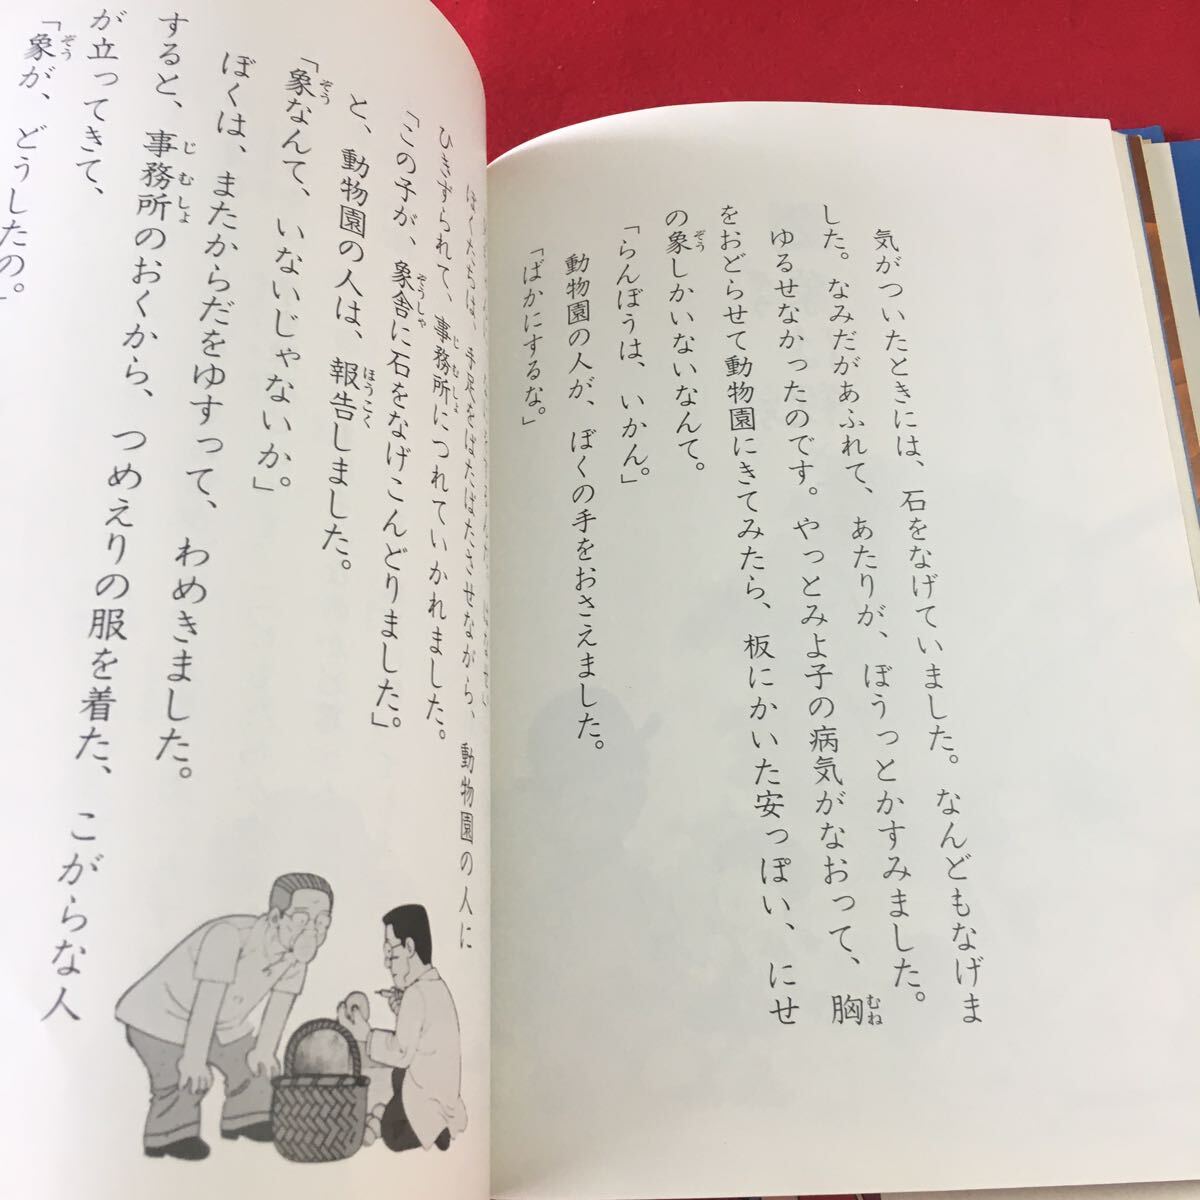 気がついたときには、石をなげていました。なんどもなげま
した。なみだがあふれて、あたりが、ぼうっとかすみました。
ゆるせなかったのです。やっとみよ子の病気がなおって、胸
をおどらせて動物園にきてみたら、板にかいた安っぽい、にせ
の象しかいないなんて。
「らんぼうは、いかん。」
動物園の人が、ぼくの手をおさえました。
「ばかにするな。」
ぼくたちは、手足をばたばたさせながら、動物園の人に
ひきずられて、事務所につれていかれました。
「この子が、象舎に石をなげこんどりました」。
と、動物園の人は、報告しました。
「象なんて、いないじゃないか。」
ぼくは、またからだをゆすって、わめきました。
すると、事務所のおくから、つめえりの服を着た、こがらな人
が立ってきて、
「象が、どうしたの。」